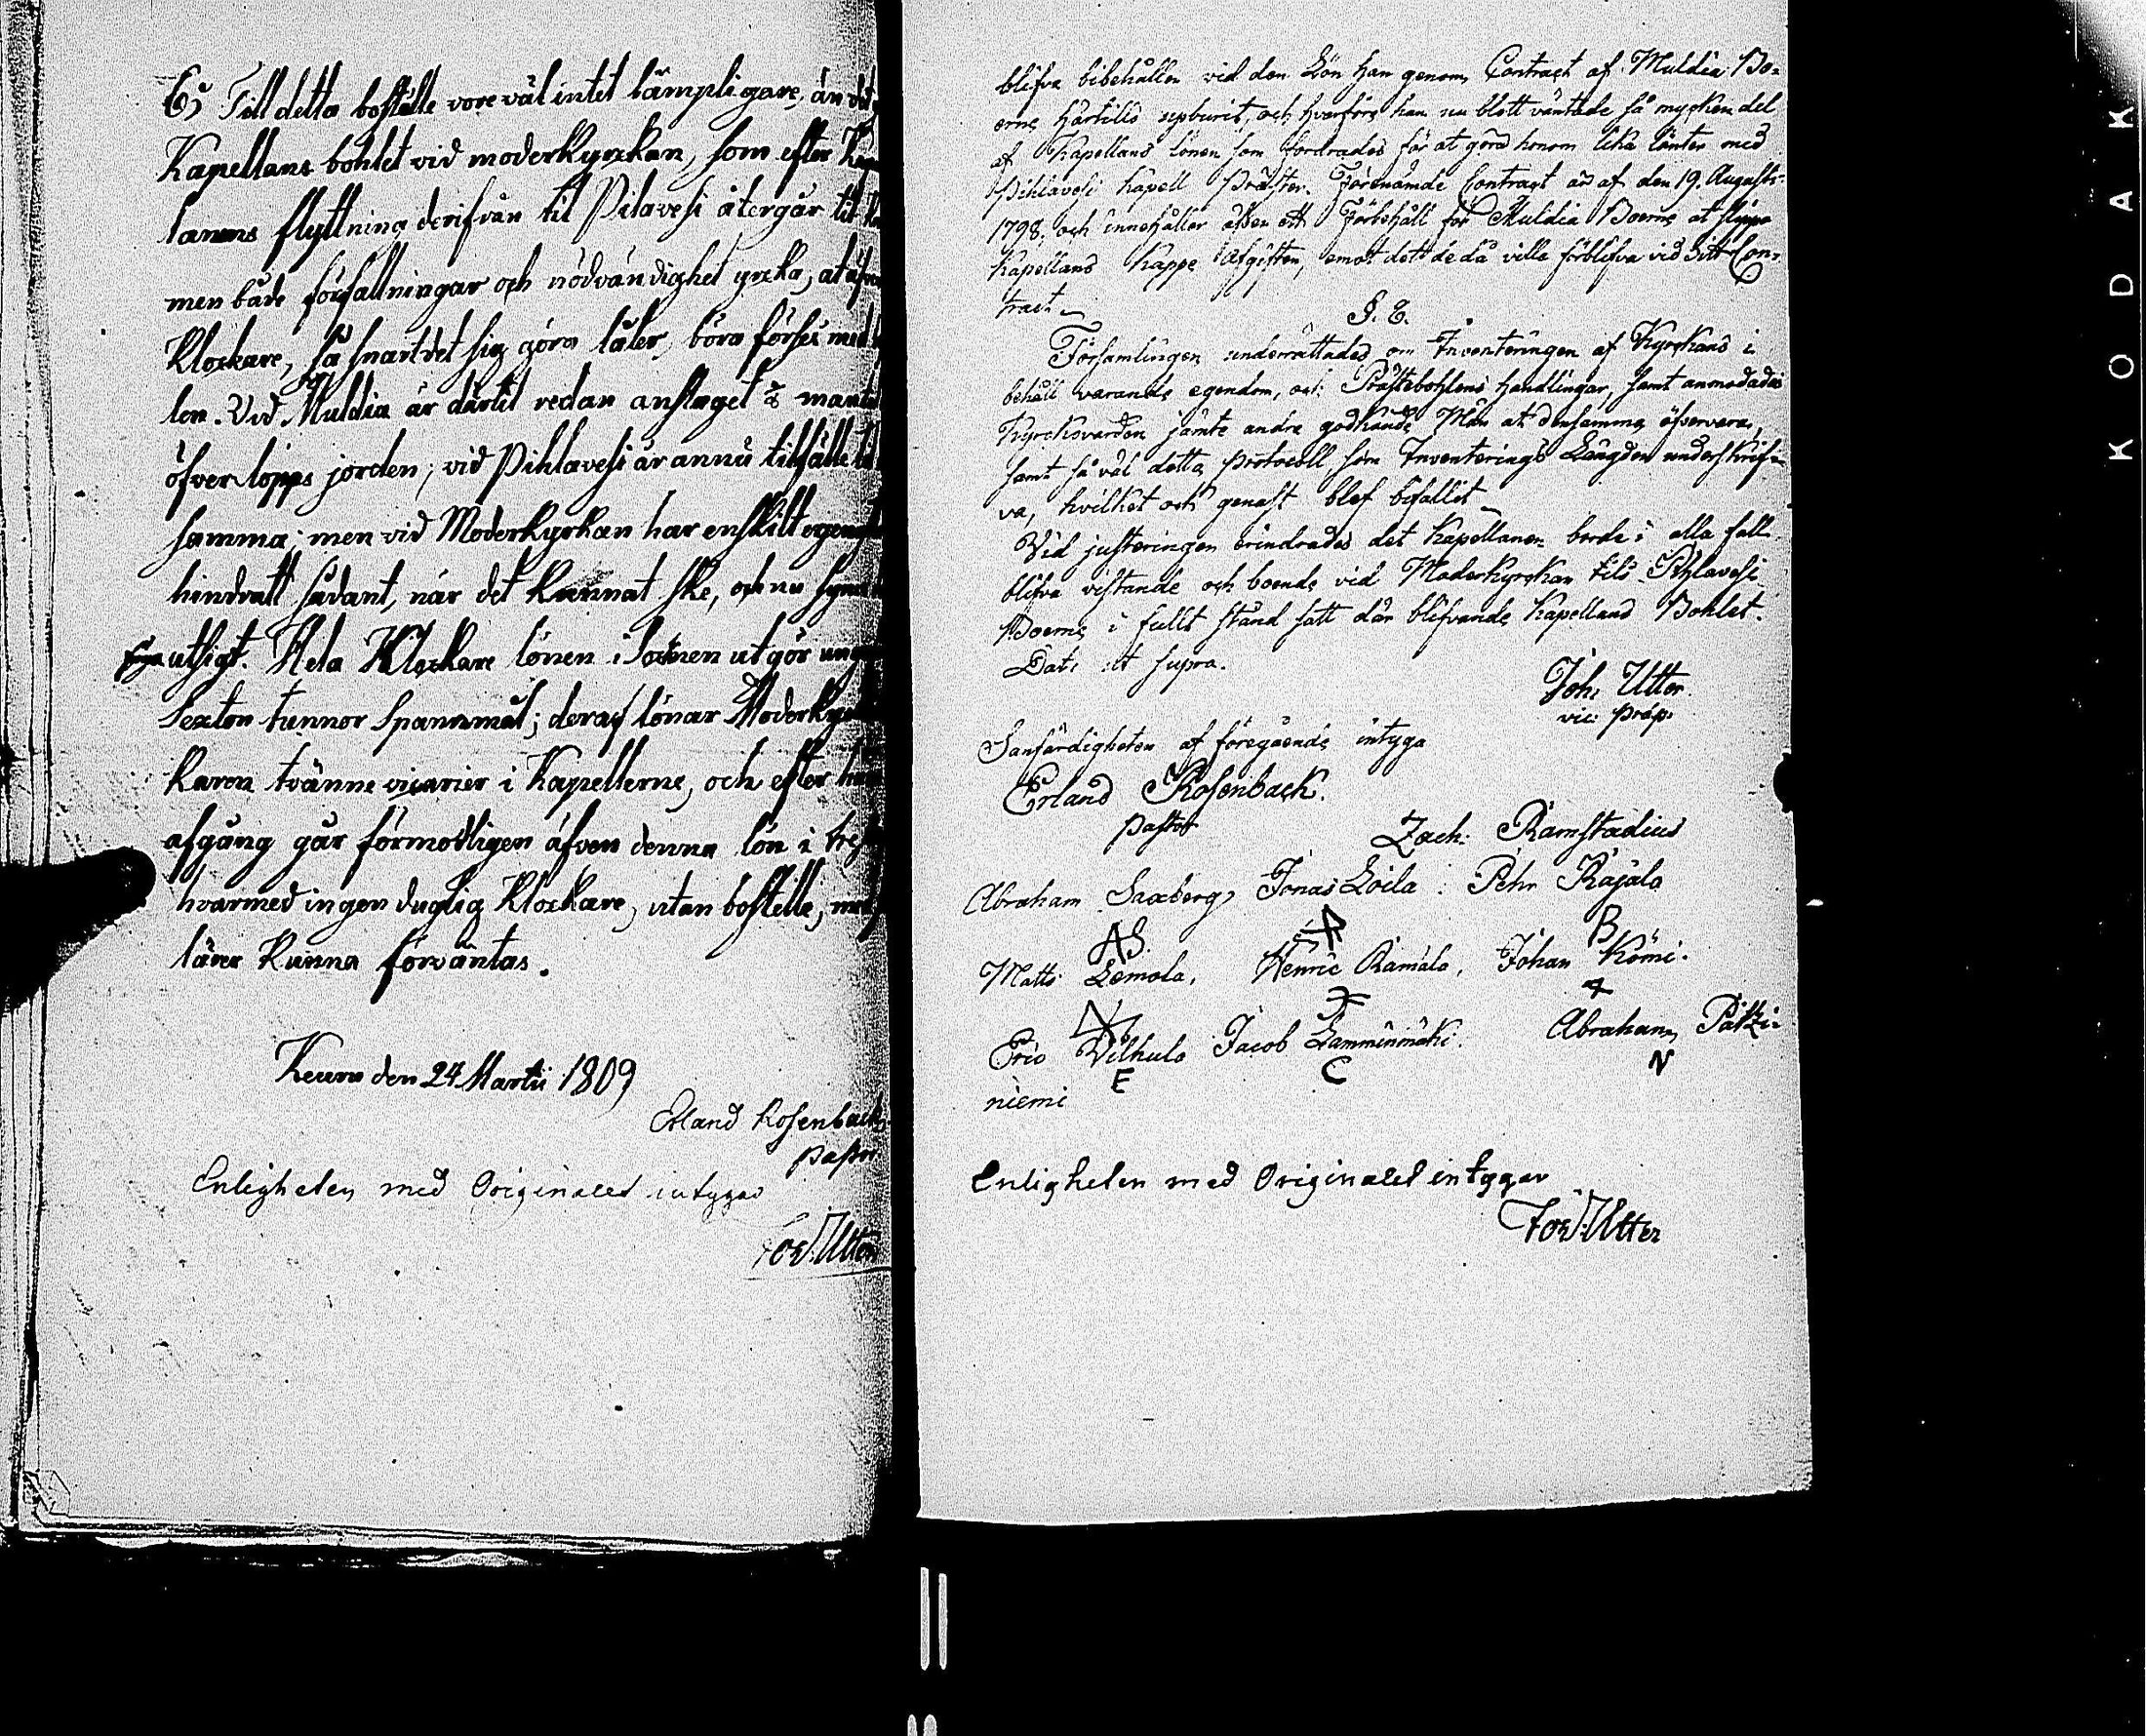 E, Till detta boställe vore väl intet lämpligare, än det
Kapellans bohlet vid moderkyrkan, som efter
lanens flyttning derifrån til Pilavesi återgår til
men både författningar och nödvändighet yrcka, at äfven
Klockare, så snart det sig göra låter, böra förses med
len. Vid Muldia är därtil redan anslaget mantal
öfverlopps jorden; vid Pihlavesi är annu tilfälle til
samma; men vid Moderkyrkan har enskilt egen
hindratt sådant, när det kunnat ske, och nu synes
utsigt. Hela Klockare lönen i Socknen utgör
Sexton tunnor Spannmål; deraf lönar Moderkyrko
karen tvänne vicarier i Kapellerne, och efter hans
afgång går förmodligen äfven denna lön i
hvarmed ingen duglig Klockare, utan boställe,
lärer kunna förväntas.
Keuru den 24 Martii 1809
Erland Rosenback
Pastor
Enligheten med Originalet intygar
Joh. Utter
blifva bibehållen vid den Lön han genom Contract af Muldia Bo-
erne härtills upburit, och hvarföre han nu blott väntade så mycken del
af Kapellans lönen som fordrades för at göra honom lika lönter med
Pihlavesi kapell Präster. Förenämde Contract är af den 19. Augusti
1798, och innehåller äfven ett Förbehåll för Muldia Boerne at slippa
Kapellans kappe afgiften, emot dett de då ville förblifva vid Sitt Con-
tract.
§. 8.
Församlingen underrättades om Inventeringen af Kyrckans i
behåll varande egendom, och Prästebohlens handlingar, samt anmodades
Kyrckovärden jämte andra godkände Män at densamma öfvervara,
samt så väl detta Protocoll som Inventerings Längden underskrif-
va, hvilket och genast blef befallit.
Vid justeringen erindrades det Kapellanen borde i alla fall
blifva vistande och boende vid Moderkyrckan tils Pihlavesi
Boerne i fullt stånd satt där blifvande Kapellans Bohlet.
Dat. ut supra.
Joh. Utter
vic: Præp.
Sanfärdigheten af föregående intyga
Erland Rosenback.
Pastor
Zach: Ramstadius
Abraham Saxberg, Jonas Loila. Pehr Rajala
AS. B
Matts Lemola, Henric Ramala, Johan Kömi.
Eric Vilhula Jacob Lamminmäki. Abraham Patzi-
E C N
niemi
Enligheten med Originalet intygar
Joh. Utter
KODAK